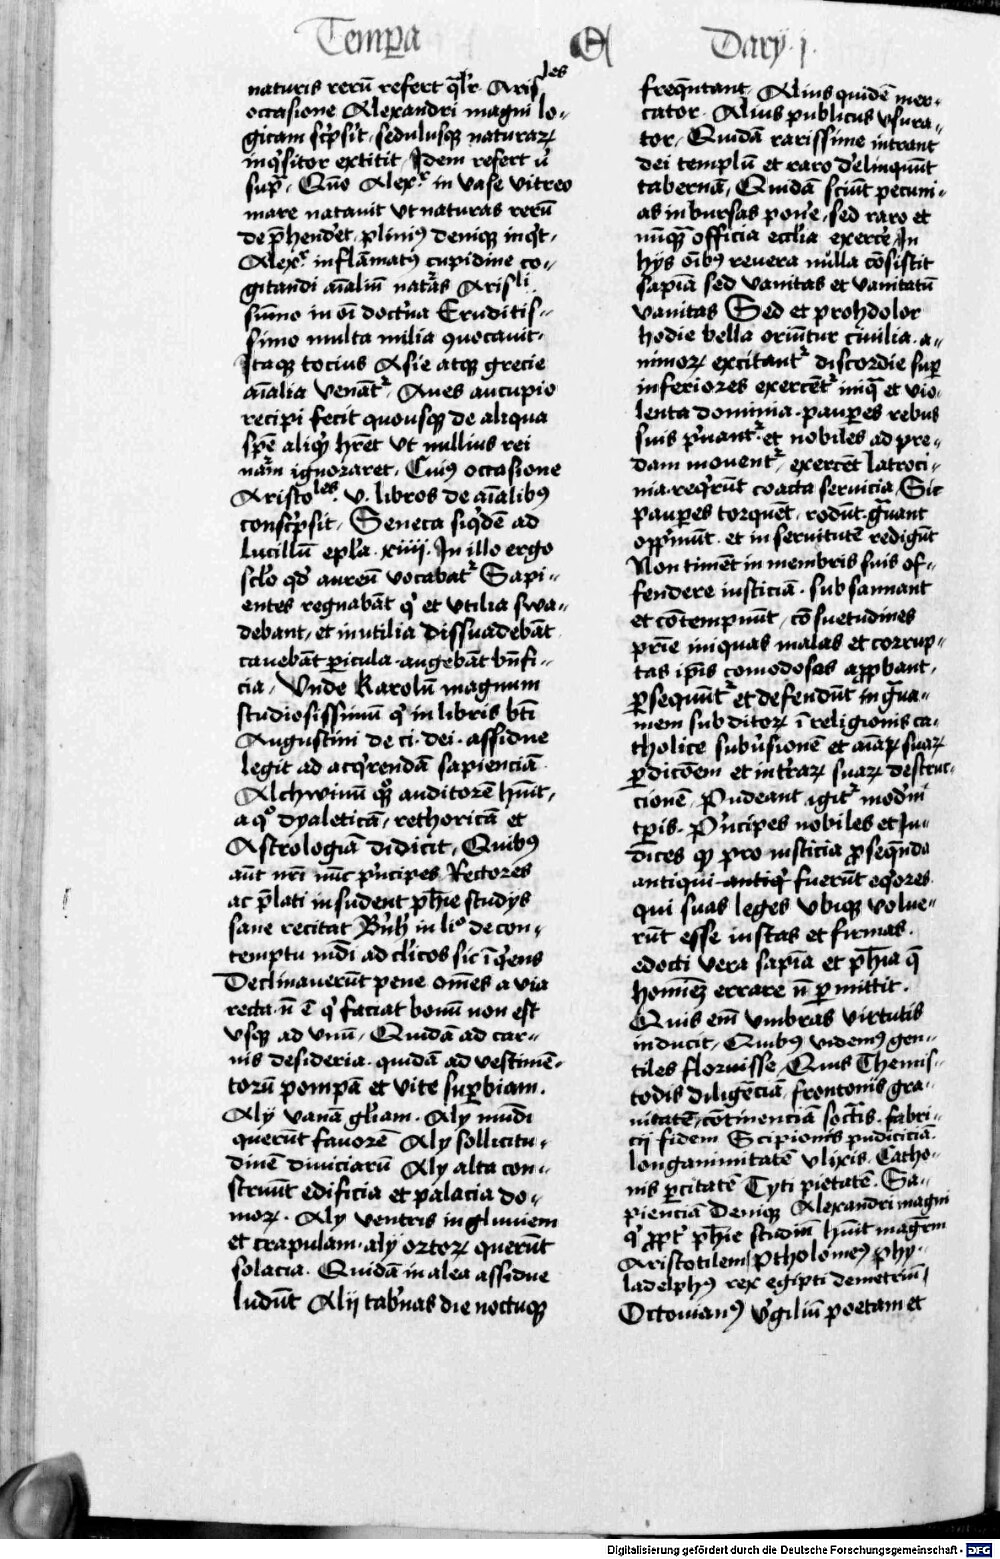 Tempa A Dary · j ·
naturis rerū refert qlr Aris les
occasione Alexandri magni lo-
gicam scpsit sedulusqꝫ naturaꝝ
inqsitor extitit Idem refert ū
supª Qūo Alexʳ in vase vitreo
mare natauit vt naturas rerū
de phendet plini9 deniqꝫ inqt
Alexʳ inflāmat9 cupidine co-
gitandi aīaliū natᵃs Aris li
sūmo in oī doctna Eruditis-
simo multa milia 9uocauit
Itaqꝫ tocius Asie atqꝫ grecie
aīalia venātʳ Aues aucupio
recipi fecit quousqꝫ de aliqua
spē aliqᵈ hrēt vt nullius rei
naᵃm ignoraret Cui9 occasione
Aristo les v. libros de aīalib9
conscpsit Seneca siqdē ad
lucillū epla xiiii. In illo ergo
sclo qd aureū vocabatʳ Sapi-
entes regnabāt q et vtilia swa-
debant et inutilia dissuadebāt
cauebāt picula augebāt bnfi-
cia Vnde Karolū magnum
studiosissimū q in libris bti
Augustini de ci. dei. assidue
legit ad acqrendā sapienciā
Alchwinū qꝫ auditorē huit
a qº dyaleticā rethoricā et
Astrologiā didicit Quib9
aūt nri nūc pncipes Rectores
ac plati insudent phie studys
sane recitat Bnh in liº de con-
temptu mdi ad clicos sic īqens
Declinauerūt pene omēs a via
recta n̄ ē q faciat bonū non est
vsqꝫ ad vnū Quidā ad car-
nis desideria quidā ad vestimē-
torū pompā et vite supbiam.
Aly vanā gliam Aly mūdi
querūt fauorē Aly sollicitu-
dinē diuiciarū Aly alta con-
struūt edificia et palacia do-
moꝝ Aly ventris ingluuiem
et crapulam aly ortoꝝ querūt
solacia Quidā in alea assidue
ludūt Alij tabnas die noctuqꝫ
freqntant Alius quidē mer-
cator Alius publicus vsura-
tor Quidā rarissime intrant
dei templū et raro delinquūt
tabernā Quidā sciūt pecuni-
as in bursas pone sed raro et
nūqꝫ officia ecclia exerce In
hys oib9 reuera nulla cōsistit
sapīa sed vanitas et vanitatū
vanitas Sed et prohdolor
hodie bella oriūtur ciuilia a-
nimoꝝ excitantʳ discordie sup
inferiores exercētʳ iniq et vio-
lenta dominia paupes rebus
suis pnantʳ et nobiles ad pre-
dam mouentʳ exercēt latroci-
nia reqrūt coacta seruicia Sic
paupes torquēt rodūt guant
oppmūt et in seruitutē redigūt
Non timēt in membris suis of-
fendere iusticiā subsannant
et cōtempnūt cōsuetudines
prie iniquas malas et corrup-
tas ipis comodosas appbant
psequūtʳ et defendūt in gua-
men subditoꝝ ī religionis ca-
tholice subusionē et aīaꝝ suaꝝ
pdicōem et intraꝝ suaꝝ destruc-
cionē Pudeant igitʳ modni
tpis Pncipes nobiles et Iu-
dices qꝫ pro iusticia pseqnda
antiqui antiq fuerūt eqores
qui suas leges vbiqꝫ volue-
rūt esse iustas et firmas
edocti vera sapīa et phia q
homiēꝫ errare n̄ pmittit
Quis em̄ vmbras virtutis
inducit Quib9 videm9 gen-
tiles floruisse Qius Themis-
todis diligēciā frontonis gra-
uitatē cōtinenciā socᵗis fabri-
cij fidem Scipionis pudiciciā
longanimitatē vlixis Catho-
nis pcitatē Tyti pietatē Sa-
pienciā deniqꝫ Alexandri magni
q ppt phie studiū huit magrm
Aristotilem Ptholome9 phy-
ladelph9 rex egipti demetriū
Octouian9 vgiliū poetam et
Digitalisierung gefördert durch die Deutsche Forschungsgemeinschaft - DFG